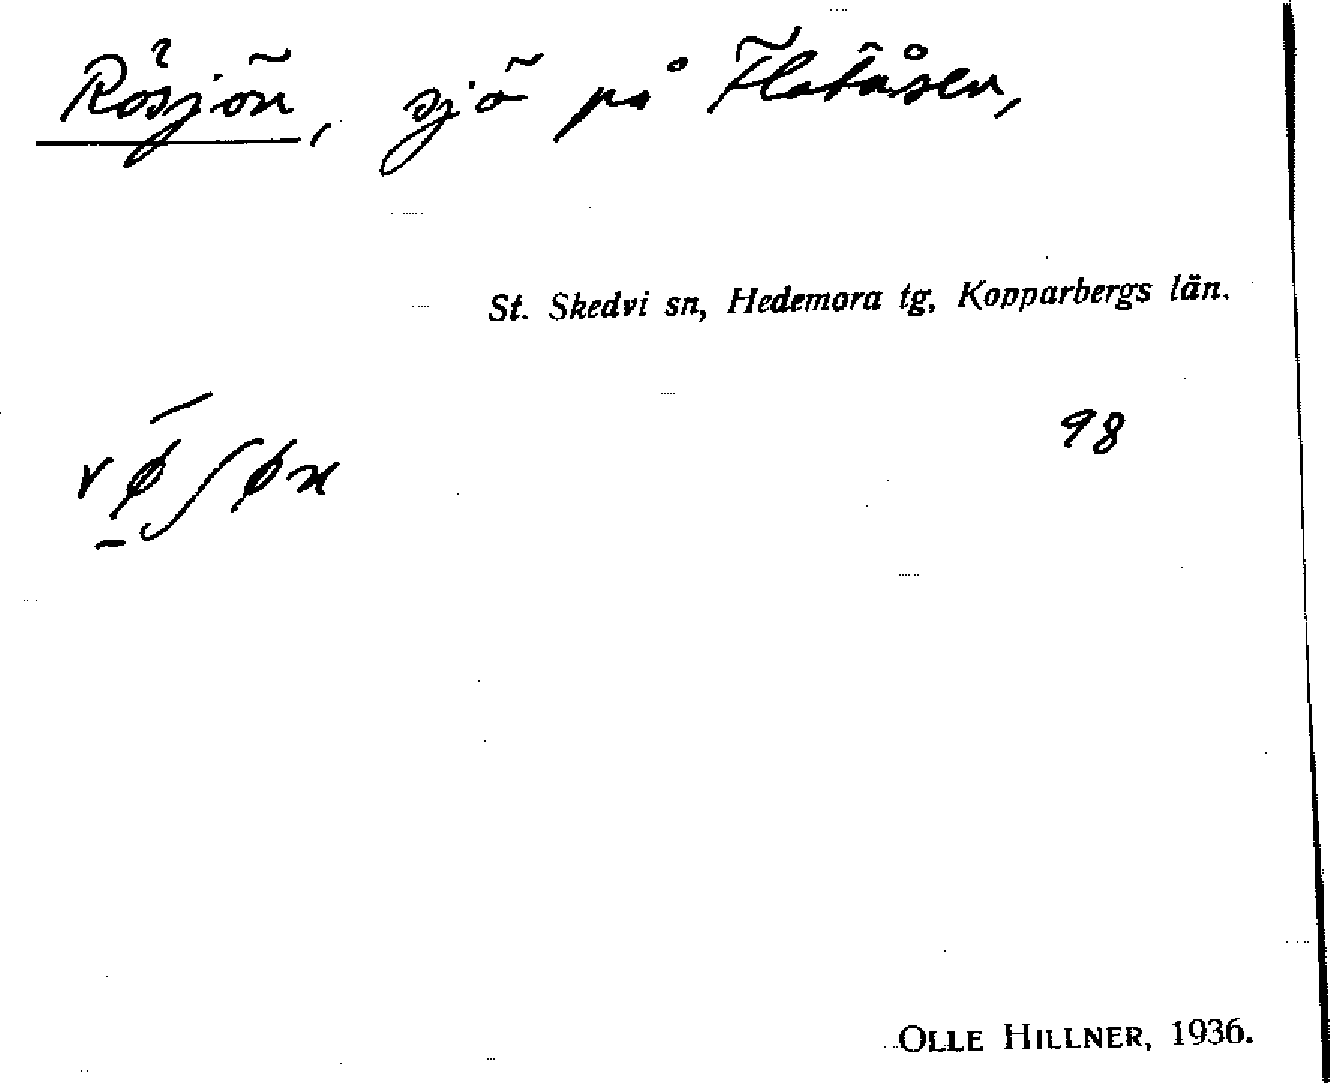 Rösjön, sjö på Flatåsen,
St. Skedvi sn, Hedemora tg, Kopparbergs län.
98
OLLE HILLNER, 1936.